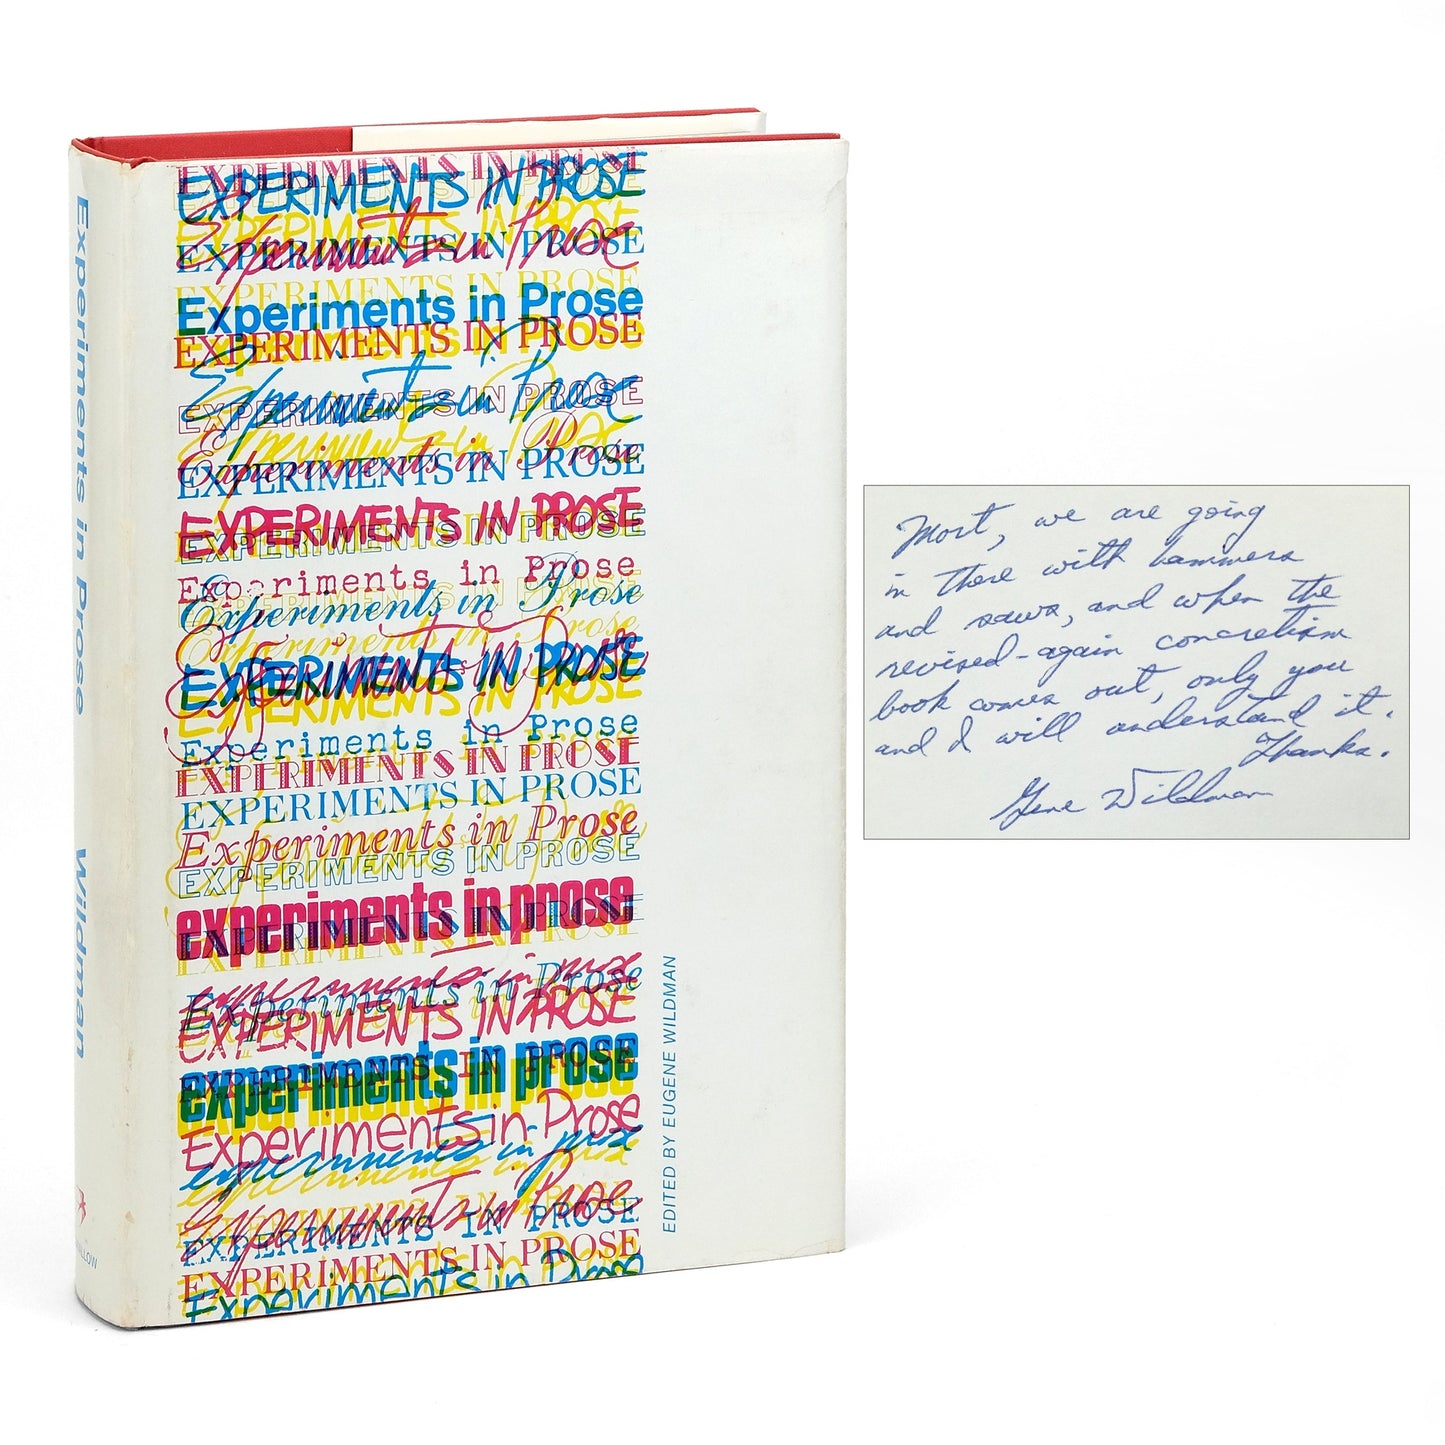 Experiments in Prose
Wildman
EXPERIMENTS IN PROSE
EXPERIMENTS IN PROSE
EXPERIMENTS IN PROSE
Experiments in Prose
EXPERIMENTS IN PROSE
EXPERIMENTS IN PROSE
Experiments in Prose
EXPERIMENTS IN PROSE
Experiments in Prose
EXPERIMENTS IN PROSE
Experiments in Prose
Experiments in Prose
EXPERIMENTS IN PROSE
EXPERIMENTS IN PROSE
EXPERIMENTS IN PROSE
Experiments in Prose
Experiments in Prose
Experiments in Prose
EXPERIMENTS IN PROSE
EXPERIMENTS IN PROSE
Experiments in Prose
EXPERIMENTS IN PROSE
EXPERIMENTS IN PROSE
Experiments in Prose
EXPERIMENTS IN PROSE
experiments in prose
EXPERIMENTS IN PROSE
experiments in prose
Experiments in Prose
EXPERIMENTS IN PROSE
experiments in prose
EXPERIMENTS IN PROSE
Experiments in Prose
experiments in prose
Experiments in Prose
EXPERIMENTS IN PROSE
EXPERIMENTS IN PROSE
Experiments in Prose
EDITED BY EUGENE WILDMAN
Mort, we are going
in there with hammers
and saws, and when the
revised-again concretism
book comes out, only you
and I will understand it.
Thanks.
Gene Wildman